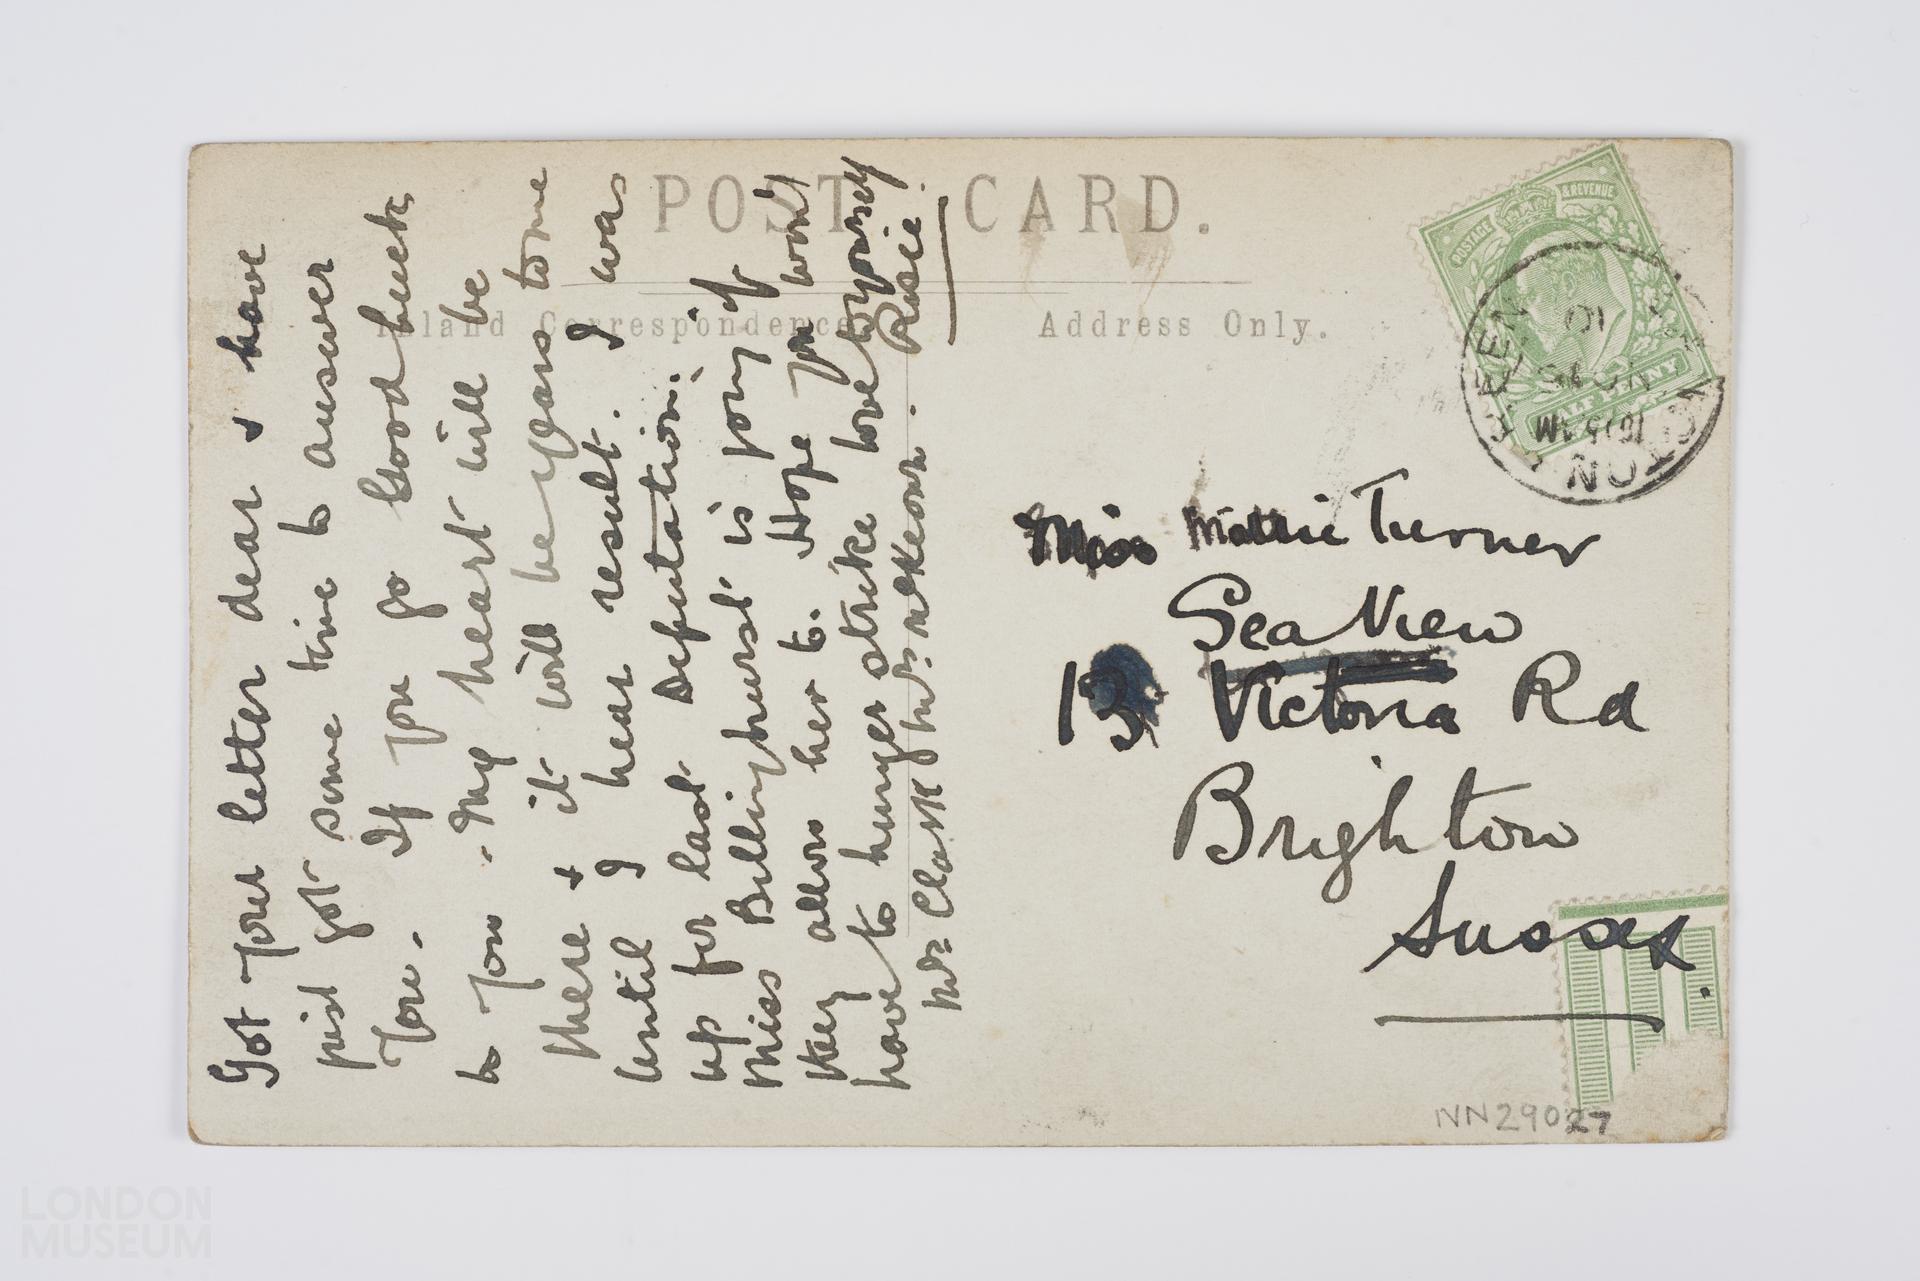 POST CARD.
Inland Correspondence.
Address Only.
Got your letter dear & have
just got some time to answer
You. If you go Good luck
to you. My heart will be
there & it will be years to me
until I hear result. I was
up for last Deputation.
Miss Billinghurst is going if
they allow her to. Hope you won't
have to hunger strike love to yourself
Mrs Clark Mrs McKeown. Rosie.
Miss Mattie Turner
Sea View
13 Victoria Rd
Brighton
Sussex.
POSTAGE & REVENUE
HALF PENNY
GREEN
10 15 AM
NO 16
10
NN29027
LONDON
MUSEUM